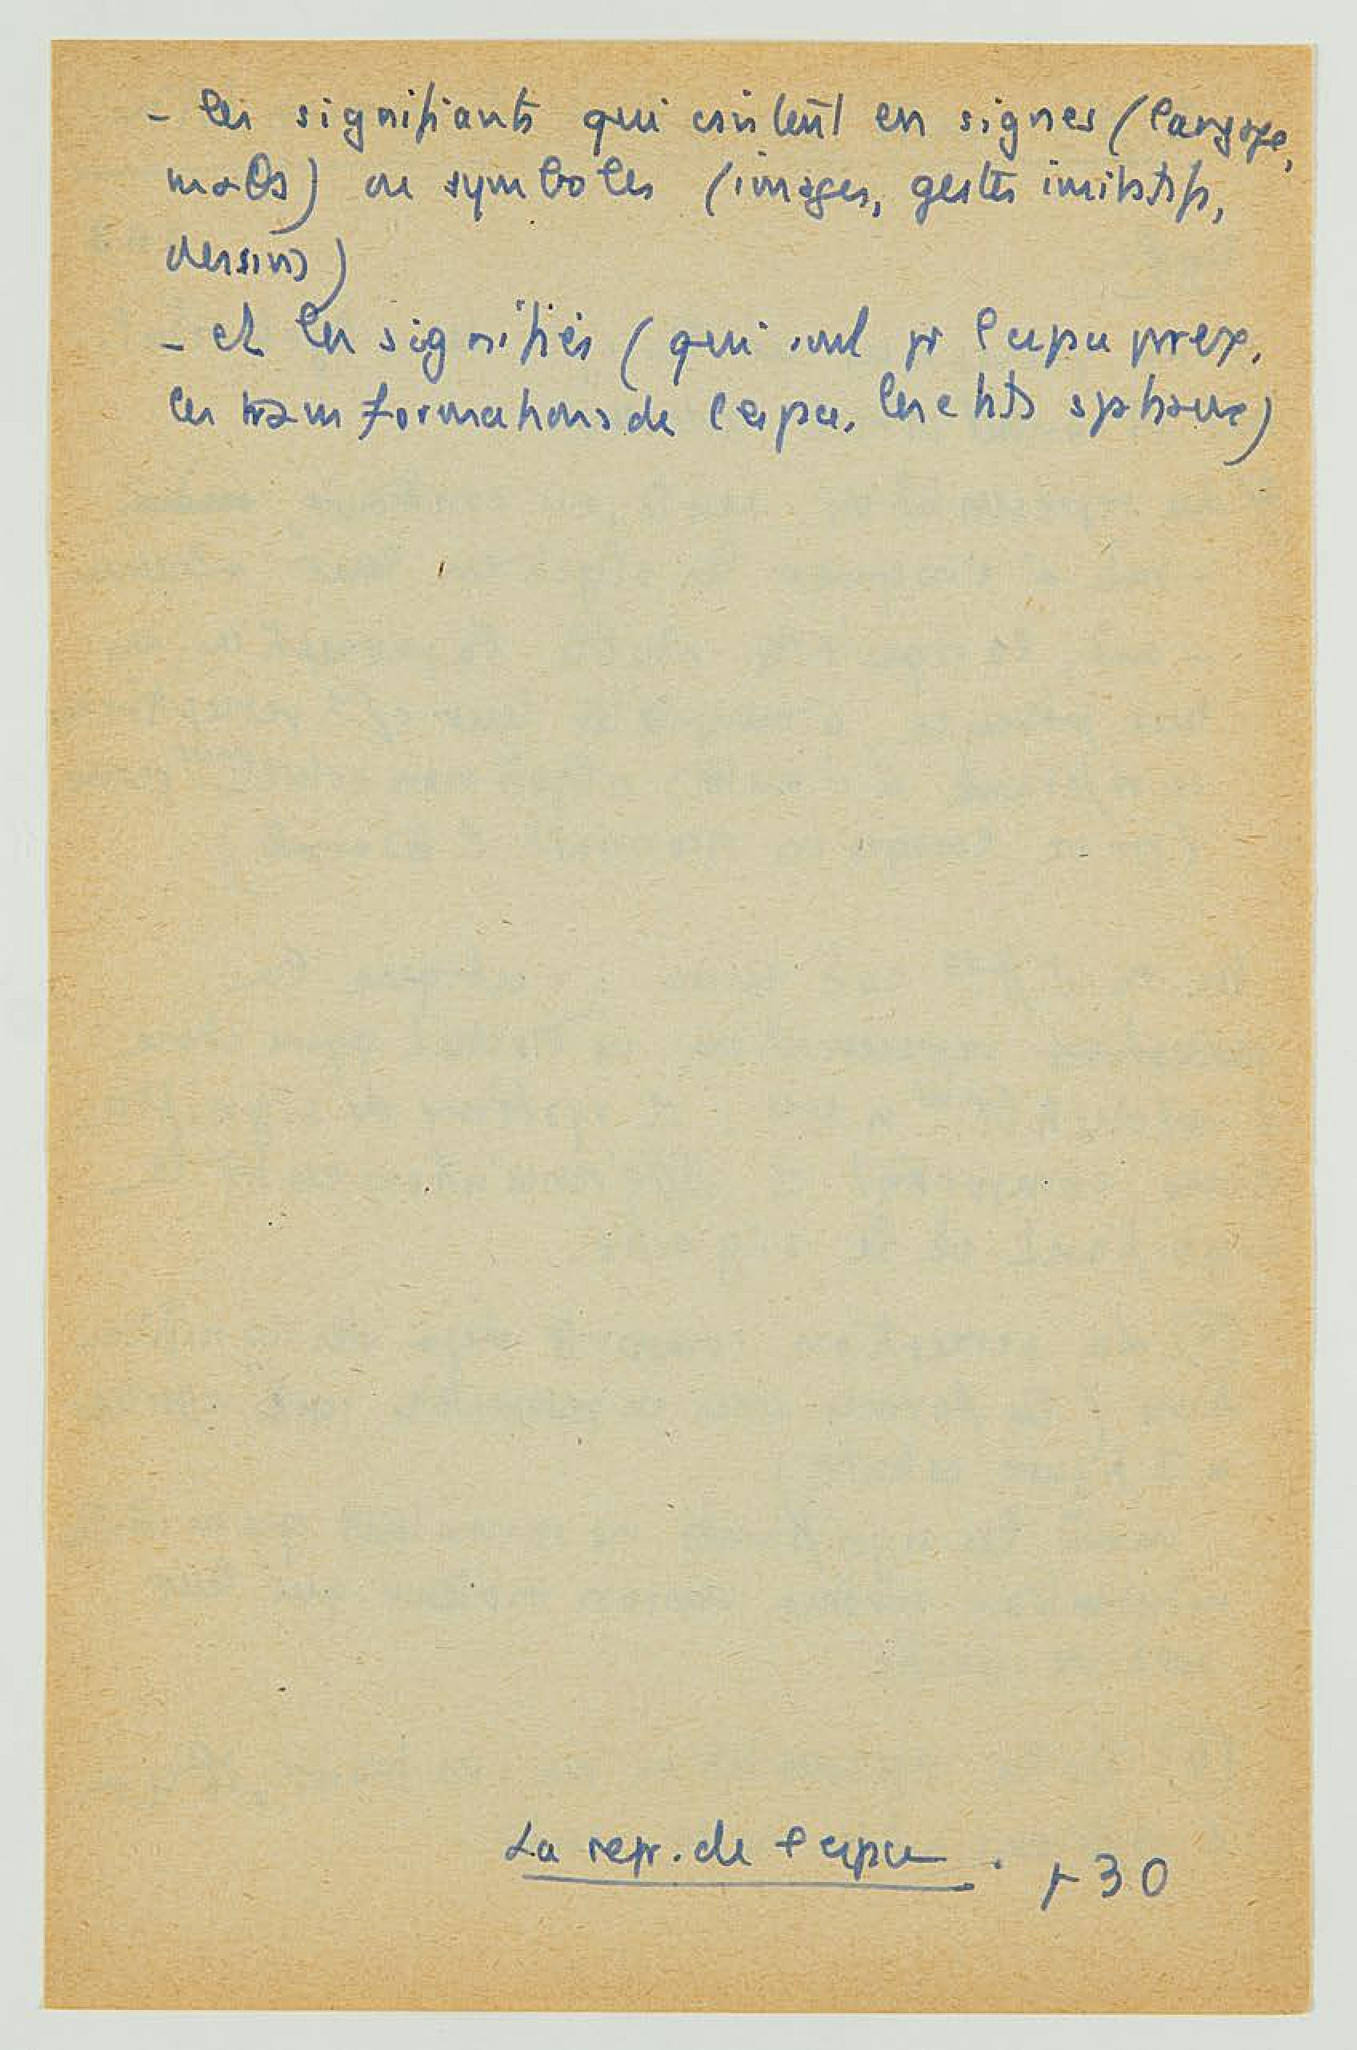 - les signifiants qui consistent en signes (langage,
mots) ou symboles (images, gestes imitatifs,
dessins)
- et les signifiés (qui sont pr l'espace par ex.
les transformations de l'espace, les états spatiaux)
La repr. de l'espace. p 30